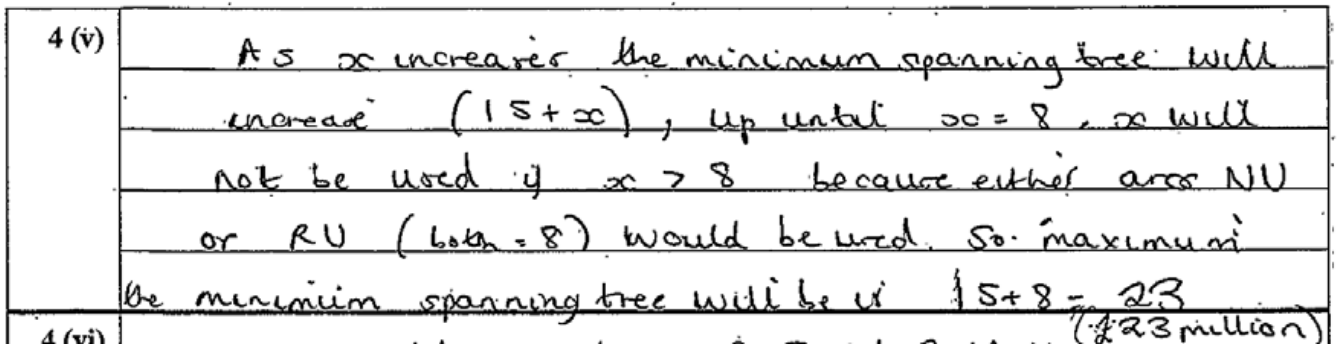 4 (v)
As x increases the minimum spanning tree will
increase (15+x), up until x = 8, x will
not be used if x > 8 because either arcs NU
or RU (both = 8) would be used. So maximum
the minimum spanning tree will be is 15+8 = 23
(£23 million)
4 (vi)